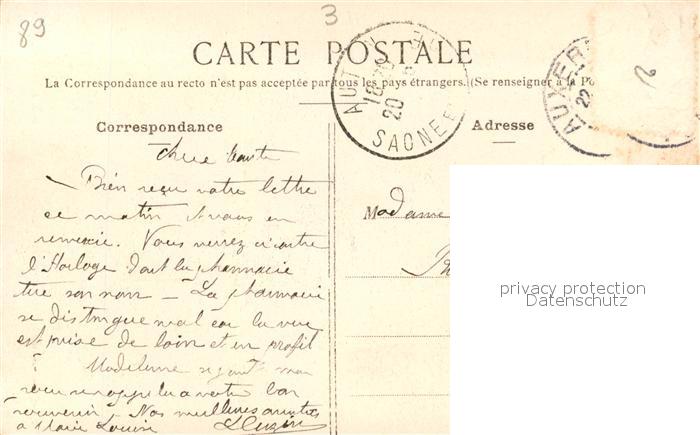 89
3
CARTE POSTALE
La Correspondance au recto n'est pas acceptée par tous les pays étrangers. (Se renseigner à la Po
Correspondance
Adresse
AUTUN
18
20
SAONE E
AUXER
22
Chère
Bien reçu votre lettre
ce matin & vous en
remercie. Vous verrez ci contre
l'Horloge dont la pharmacie
tire son nom _ La pharmacie
se distingue mal car la vue
est prise de loin et en profil
Madeleine
votre bon
souvenir. Nos meilleures amitiés
à Marie Louise
Madame
privacy protection
Datenschutz